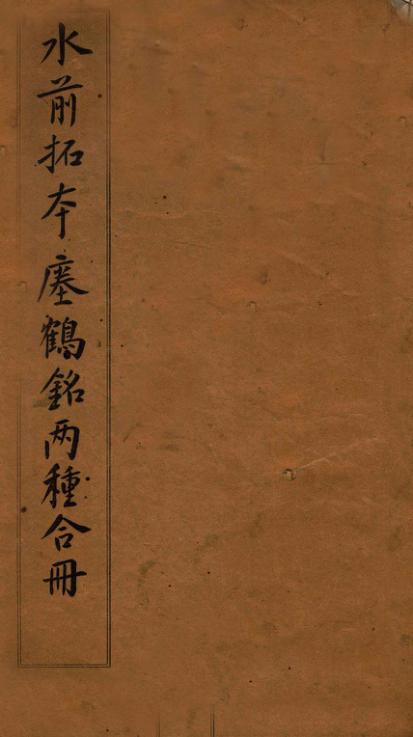 水前拓本瘞鶴銘两種合冊